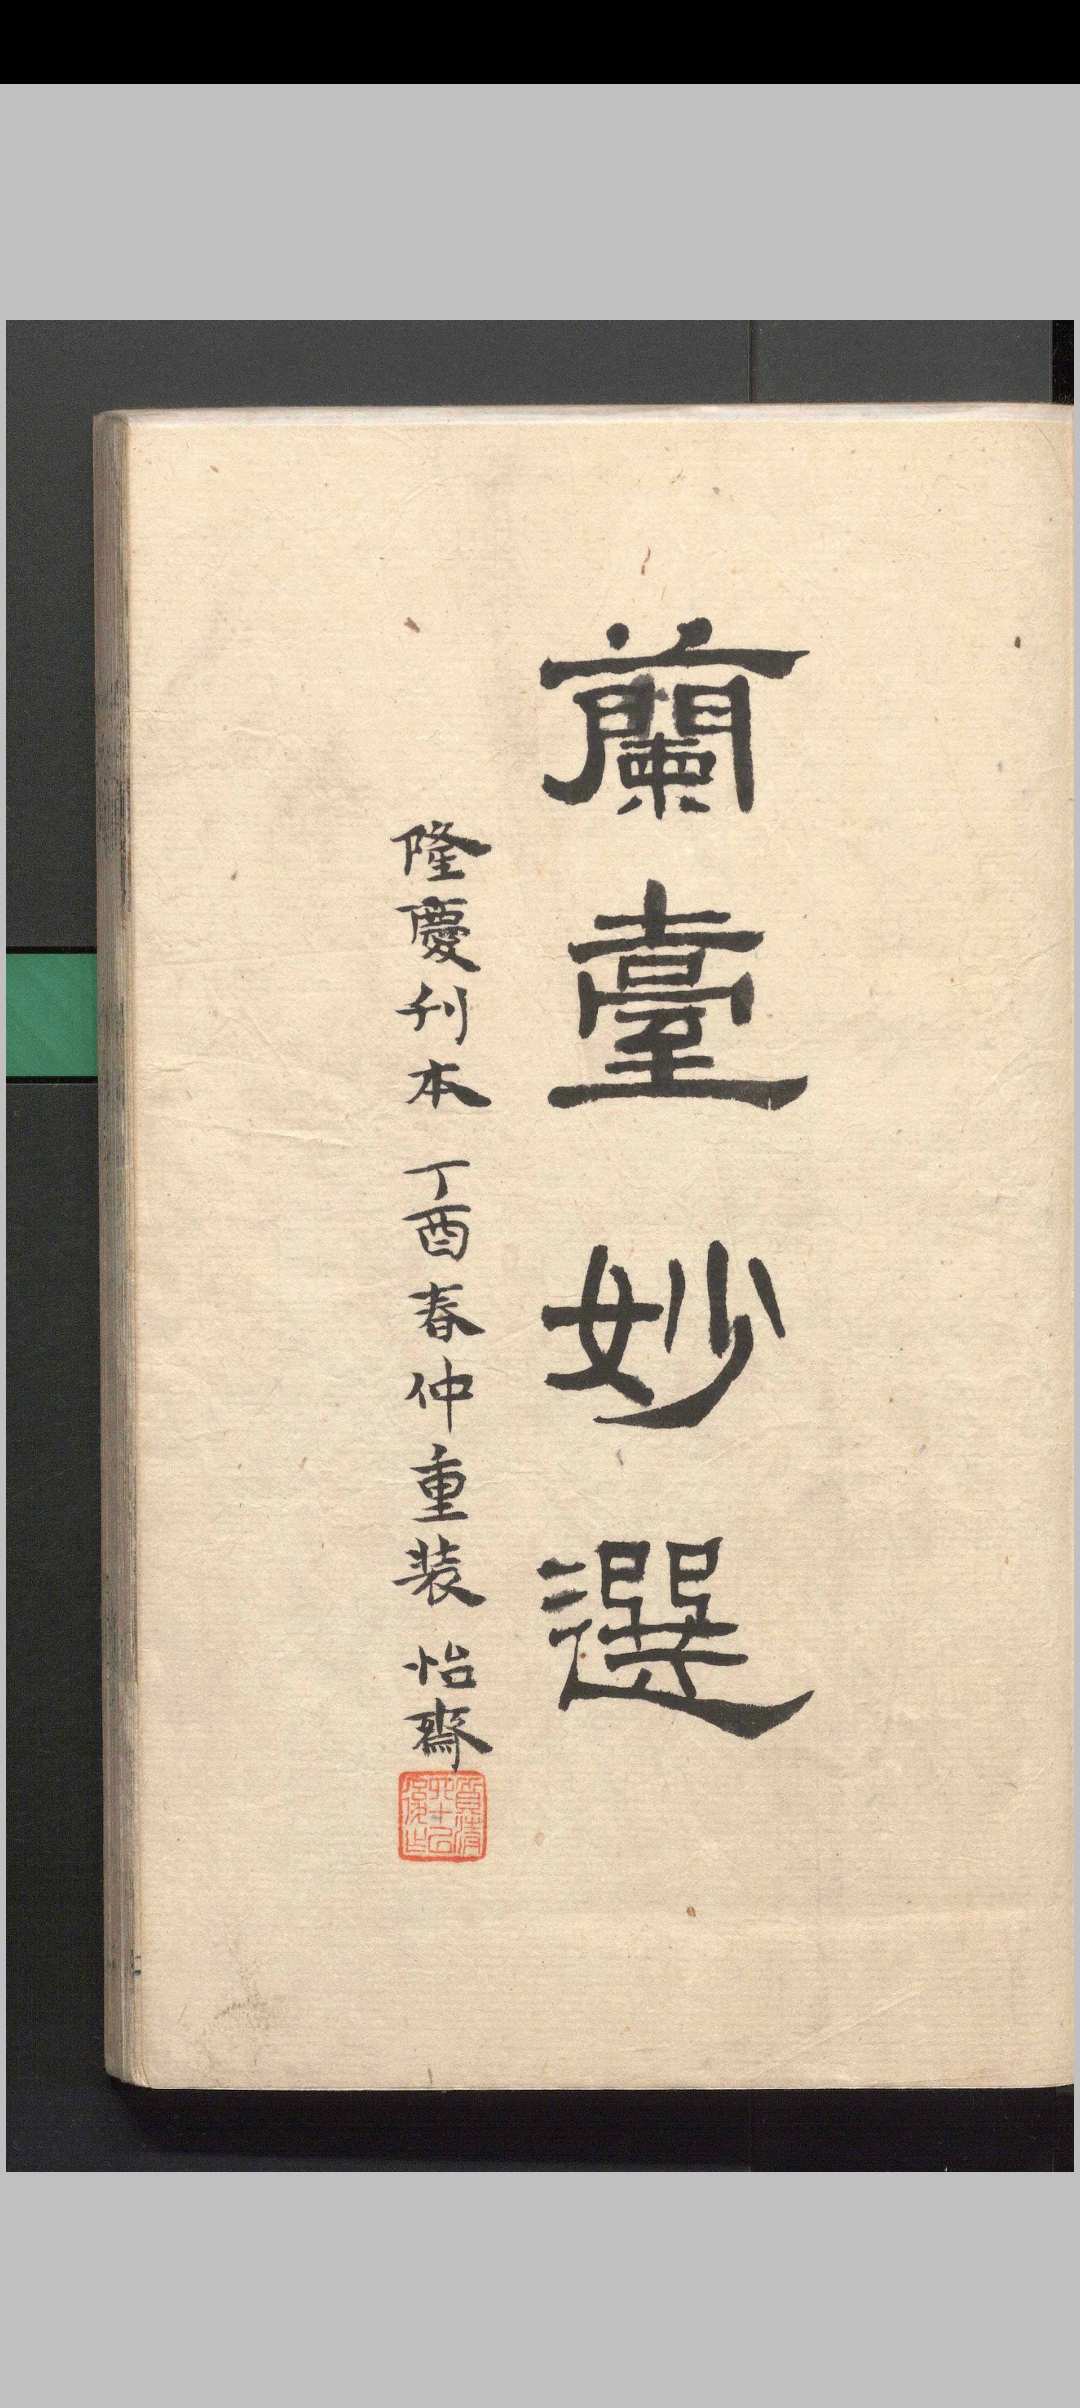 蘭臺妙選
隆慶刊本 丁酉春仲重装 怡齋